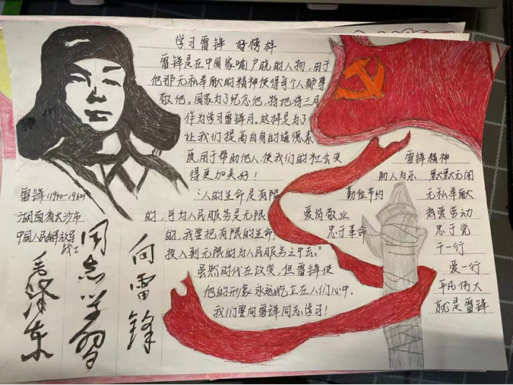 学习雷锋 好榜样
雷锋是在中国家喻户晓的人物,由于
他那无私奉献的精神使得每个人都尊
敬他。国家为了纪念他,特把将三月
作为学习雷锋月。这样是为了
让我们提高自身的道德素
质用于帮助他人,使我们的社会变
得更加美好!
"人的生命是有限
的,可为人民服务是无限
的,我要把有限的生命,
投入到无限的为人民服务之中去。"
虽然时代在改变,但雷锋使
他的形象永远屹立在人们心中。
我们要向雷锋同志学习!
雷锋(1940-1962)
湖南省长沙市
中国人民解放军
战士
向雷锋
同志学习
毛泽东
雷锋精神
助人为乐 默默无闻
勤俭节约 无私奉献
爱岗敬业 热爱劳动
忠于革命 忠于党
干一行
爱一行
平凡伟大
就是雷锋